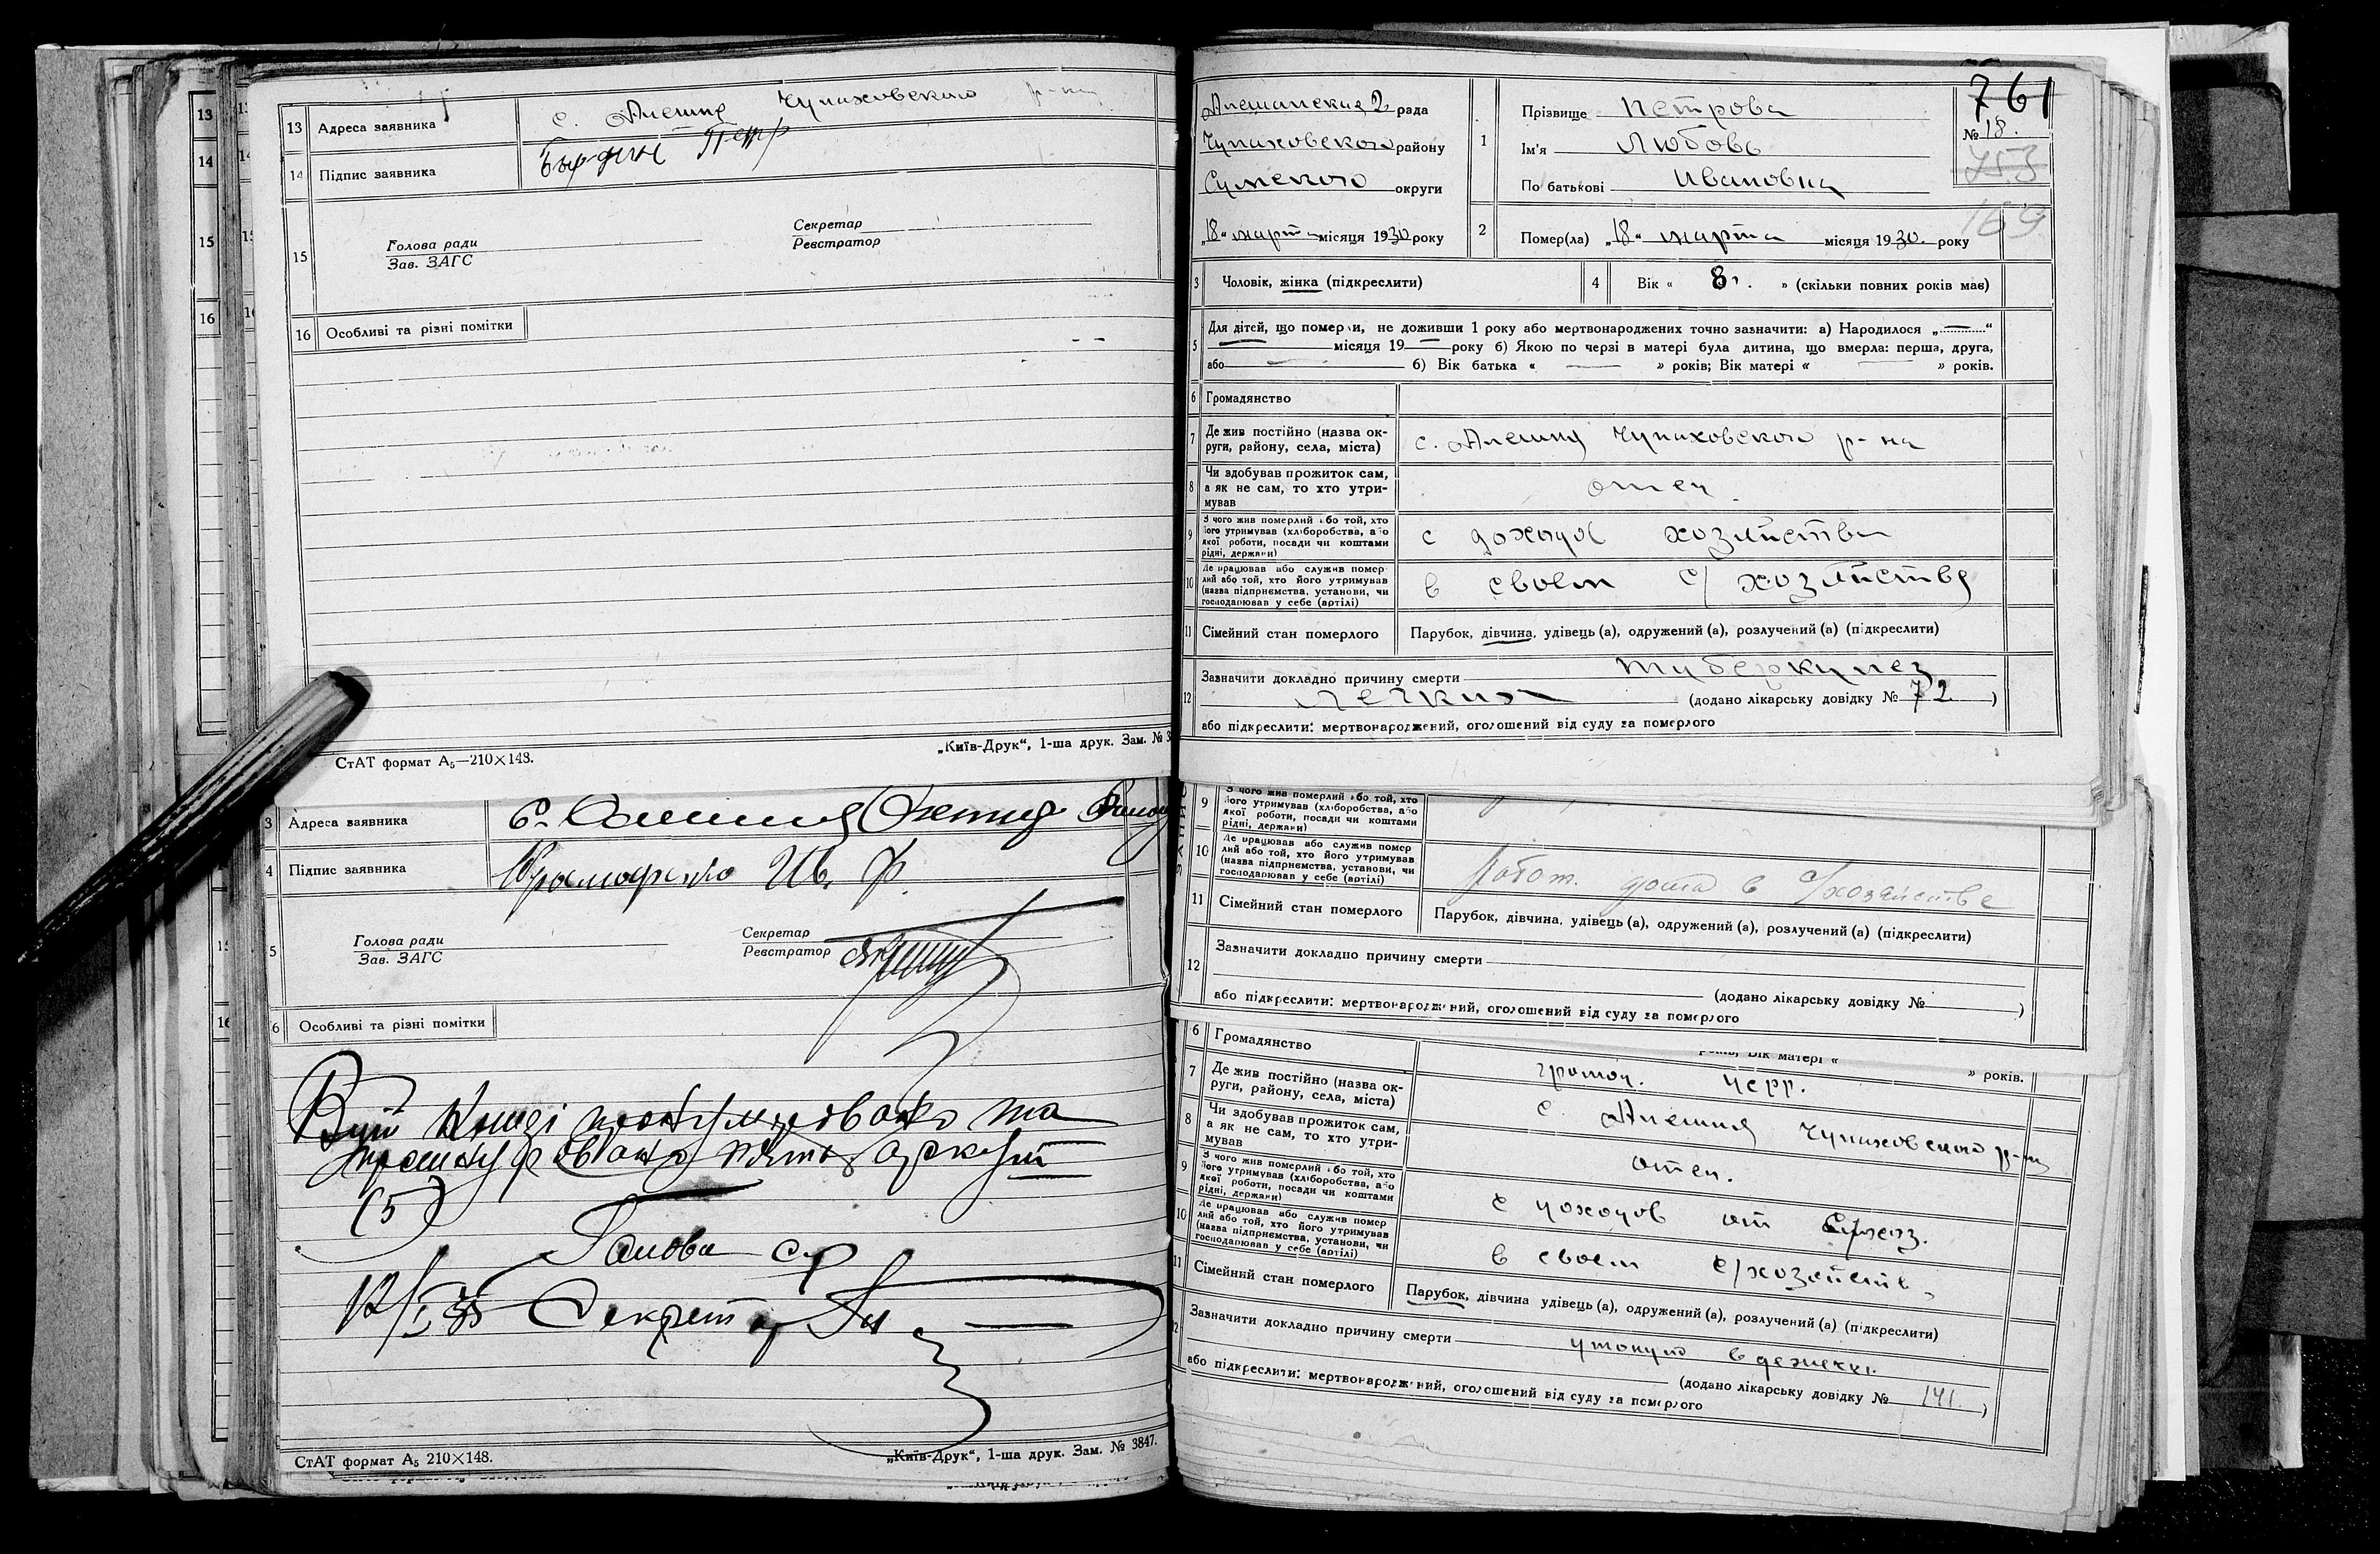 13 Адреса заявника с. Алешня Чупаховского р-на
14 Підпис заявника Петр
15 Голова ради
Зав. ЗАГС
Секретар
Реєстратор
16 Особливі та різні помітки
СтАТ формат А₅—210×148.
„Київ-Друк“, 1-ша друк. Зам. № 3
3 Адреса заявника
4 Підпис заявника Ив. Ф.
5 Голова ради
Зав. ЗАГС
Секретар
Реєстратор
6 Особливі та різні помітки
та
аркуш
(5)
Голова с/р
Секретар
СтАТ формат А₅ 210×148.
„Київ-Друк“, 1-ша друк. Зам. № 3847.
Алешанская 2 рада
Чупаховского району
Сумского округи
„18“ марта місяця 1930 року
1 Прізвище Петрова
Ім'я Любовь
По батькові Ивановна
761
№ 18.
753
169
2 Помер(ла) „18“ марта місяця 1930. року
3 Чоловік, жінка (підкреслити)
4 Вік « 8 » (скільки повних років має)
5 Для дітей, що померли, не доживши 1 року або мертвонароджених точно зазначити: а) Народилося „ — “
— місяця 19 — року б) Якою по черзі в матері була дитина, що вмерла: перша, друга,
або — б) Вік батька « — » років; Вік матері « — » років.
6 Громадянство
7 Де жив постійно (назва ок-
руги, району, села, міста) с. Алешня Чупаховского р-на
8 Чи здобував прожиток сам,
а як не сам, то хто утри-
мував отец.
9 З чого жив померлий або той, хто
його утримував (хліборобства, або
якої роботи, посади чи коштами
рідні, держави) с доходов хозяйства
10 Де працював або служив помер
лий або той, хто його утримував
(назва підприємства, установи, чи
господарював у себе (артілі) в своем с/хозяйстве
11 Сімейний стан померлого Парубок, дівчина, удівець (а), одружений (а), розлучений (а) (підкреслити)
12 Зазначити докладно причину смерти туберкулез
легких (додано лікарську довідку № 72)
або підкреслити: мертвонароджений, оголошений від суду за померлого
9 З чого жив померлий або той, хто
його утримував (хліборобства, або
якої роботи, посади чи коштами
рідні, держави)
10 Де працював або служив помер
лий або той, хто його утримував
(назва підприємства, установи, чи
господарював у себе (артілі) работ. дома в с/хозяйстве
11 Сімейний стан померлого Парубок, дівчина, удівець (а), одружений (а), розлучений (а) (підкреслити)
12 Зазначити докладно причину смерти
(додано лікарську довідку № )
або підкреслити: мертвонароджений, оголошений від суду за померлого
років; Вік матері « » років.
6 Громадянство
7 Де жив постійно (назва ок-
руги, району, села, міста) с. Алешня Чупаховского р-на
8 Чи здобував прожиток сам,
а як не сам, то хто утри-
мував отец.
9 З чого жив померлий або той, хто
його утримував (хліборобства, або
якої роботи, посади чи коштами
рідні, держави) с доходов от с/хоз.
10 Де працював або служив помер
лий або той, хто його утримував
(назва підприємства, установи, чи
господарював у себе (артілі) в своем с/хозяйств
11 Сімейний стан померлого Парубок, дівчина удівець (а), одружений (а), розлучений (а) (підкреслити)
Зазначити докладно причину смерти утонул в
(додано лікарську довідку № 141.)
або підкреслити: мертвонароджений, оголошений від суду за померлого